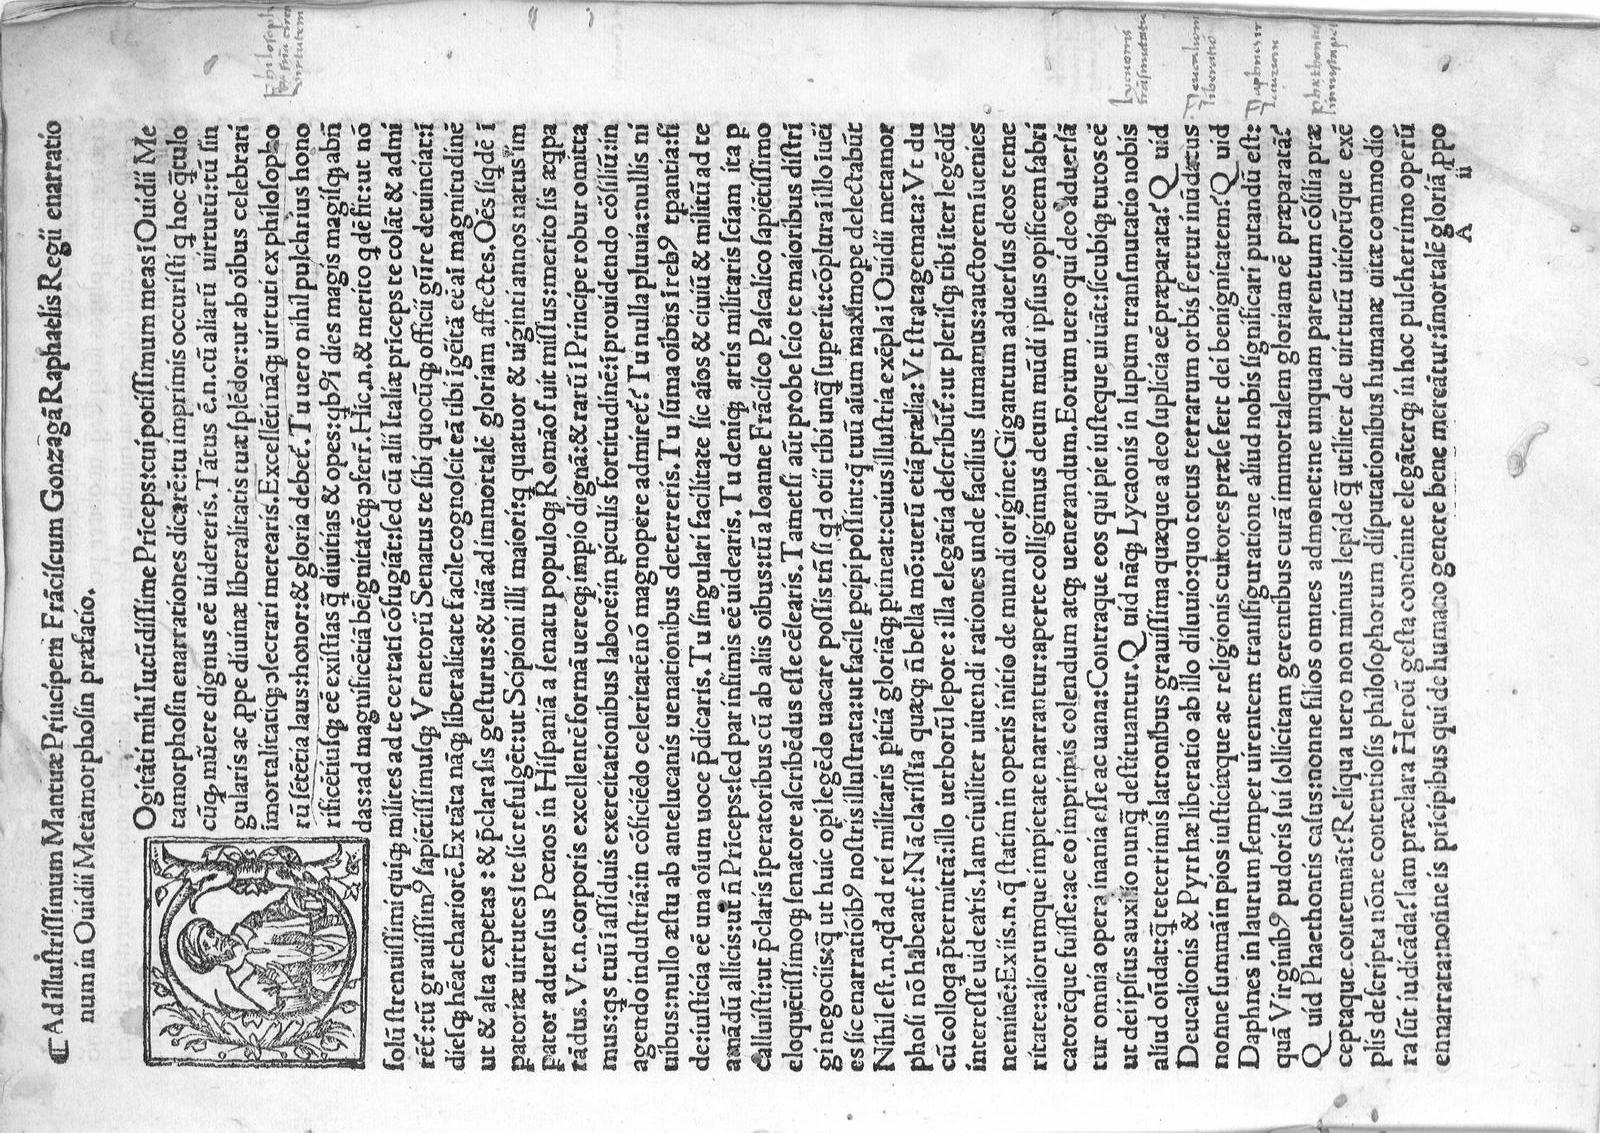 ❡ Ad illustrissimum Mantuæ Príncipem Frãciscum Gonzagã Raphaelis Regii enarratio
num in Ouidii Metamorphosin præfatio.
Ogitãti mihi Iucũdissime Prĩceps: cui potissimum meas i Ouidii Me
tamorphosin enarrationes dicarẽ: tu imprimis occuristi q hoc q̃culo
cũq; mũere dignus eẽ uidereris. Tãtus ẽ.n. cũ aliarũ uirtutũ: tũ sin
gularis ac ꝓpe diuinæ liberalitatis tuæ splẽdor: ut ab oĩbus celebrari
ĩmortalitatiq; ↄsecrari merearis. Excellẽti nãq; uirtuti ex philosopho
rũ sẽtẽtia laus: honor: & gloria debet̃. Tu uero nihil pulchrius hono
rificẽtiusq; eẽ existĩas q̃ diuitias & opes: qb9 i dies magis magisq; abñ
das: ad magnificẽtiã bẽignitatẽq; ↄferr̃. Hĩc.n. & merito q dẽ fit: ut nõ
solũ strenuissimi quiq; milites ad te certatĩ cõfugiãt: sed cũ alii Italiæ prĩceps te colãt & admi
rẽt̃: tũ grauissim9 sapiẽtissimusq; Venetorũ Senatus te sibi quocũq; officii gñre deuinciat: i
diesq; hẽat chariorẽ. Extãta nãq; liberalitate facile cognoscit eã tibi ĩgẽitã eẽ aĩ magnitudinẽ
ut & alta expetas: & p̃clara sis gesturus: & uiã ad immortalẽ gloriam affectes. Oẽs siq dẽ ĩ
patoriæ uirtutes ĩ te sic refulgẽt: ut Scipioni illi maiori: q quatuor & uigintĩ annos natus ĩm
pator aduersus Pœnos in Hispaniã a senatu populoq; Romão fuit missus: merito sis æqpa
rãdus. Vt.n. corporis excellentẽ formã uereq; ĩmpio dignã: & rarũ ĩ Príncipe robur omitta
mus: q̃s tuũ i assiduis exercitationibus laborẽ: in piculis fortitudinẽ: i prouidendo cõsiliũ: in
agendo industriã: in cõficiẽdo celeritatẽ nõ magnopere admiret̃? Tu nulla pluuia: nullis ni
uibus: nullo æstu ab antelucanis uenationibus deterreris. Tu sũma oibus ĩ reb9 tpantia: fi
de: iusticia eẽ una oium uoce p̃dicaris. Tu singulari facilitate sic aĩos & ciuiũ & militũ ad te
amãdũ allicis: ut ñ Príceps: sed par infimis eẽ uidearis. Tu deniq; artis militaris scĩam ita p
calluisti: ut p̃claris ĩperatoribus cũ ab aliis oĩbus: tũ a Ioanne Frãcisco Pascalico sapiẽtissimo
eloquẽtissimoq; senatore ascribẽdus esse cẽsearis. Tametsi aũt probe scio te maioribus distri
gi negociis: q̃ ut huic opi legẽdo uacare possis tñ si q d otii tibi unq̃ supẽrit: cõplura ĩ illo iuẽi
es sic enarratiõib9 nostris illustrata: ut facile pcipi possint: q̃ tuũ aĩum maxĩmope delectabũt
Nihil est.n. qđ ad rei militaris pĩtiã gloriãq; ptineat: cuius illustria exẽpla ĩ Ouidii metamor
phosi nõ habeant̃: Nã clarissĩa quæq; ñ bella mõ: uerũ etiã prælia: Vt stratagemata: Vt du
cũ colloqa p̃termittã: illo uerborũ lepore: illa elegãtia describũt̃: ut plerisq; tibi ĩter legẽdũ
interesse uidearis. Iam ciuiliter uiuendi rationes unde facilius sumamus: auctorem iuenies
neminẽ: Ex iis.n. q̃ statim in operis initio de mundi origine: Gigantum aduersus deos teme
ritate: aliorumque impietate narrantur: aperte colligimus deum mũdi ipsius opificem fabri
catorẽque fuisse: ac eo imprimis colendum atq; uenerandum. Eorum uero qui deo aduersã
tur omnia opera inania esse ac uana: Contraque eos qui pie iusteque uiuãt: sicubiq; tutos eẽ
ut dei ipsius auxilio nunq̃ destituantur. Quid nãq; Lycaonis in lupum transmutatio nobis
aliud oñdat: q̃ teterrimis latronibus grauissima quæque a deo suplicia eẽ præparata? Quid
Deucalionis & Pyrrhæ liberatio ab illo diluuio: quo totus terrarum orbis fertur inũdatus
nonne summã in pios iusticiæque ac religionis cultores præse fert dei benignitatem? Quid
Daphnes in laurum semper uirentem transfiguratione aliud nobis significari putandũ est:
quã Virginib9 pudoris sui sollicitam gerentibus curã immortalem gloriam eẽ præparatã?
Quid Phaethontis casus: nonne filios omnes admonet: ne unquam parentum cõsilia præ
ceptaque contemnãt? Reliqua uero non minus lepide q̃ utiliter de uirtutũ uitiorũque exẽ
plis descripta nõne contentiosis philosophorum disputationibus humanæ uitæ commodio
ra sũt iudicãda? Iam præclara Heroũ gesta concinne elegãterq; in hoc pulcherrimo operũ
enarrata: nonne is prĩcipibus qui de humano genere bene mereãtur: ĩmortalẽ gloriã ꝓpo
A ii
Lycaonis
Deucalionis
liberatio
Daphnes in
Laurum
phæthontis